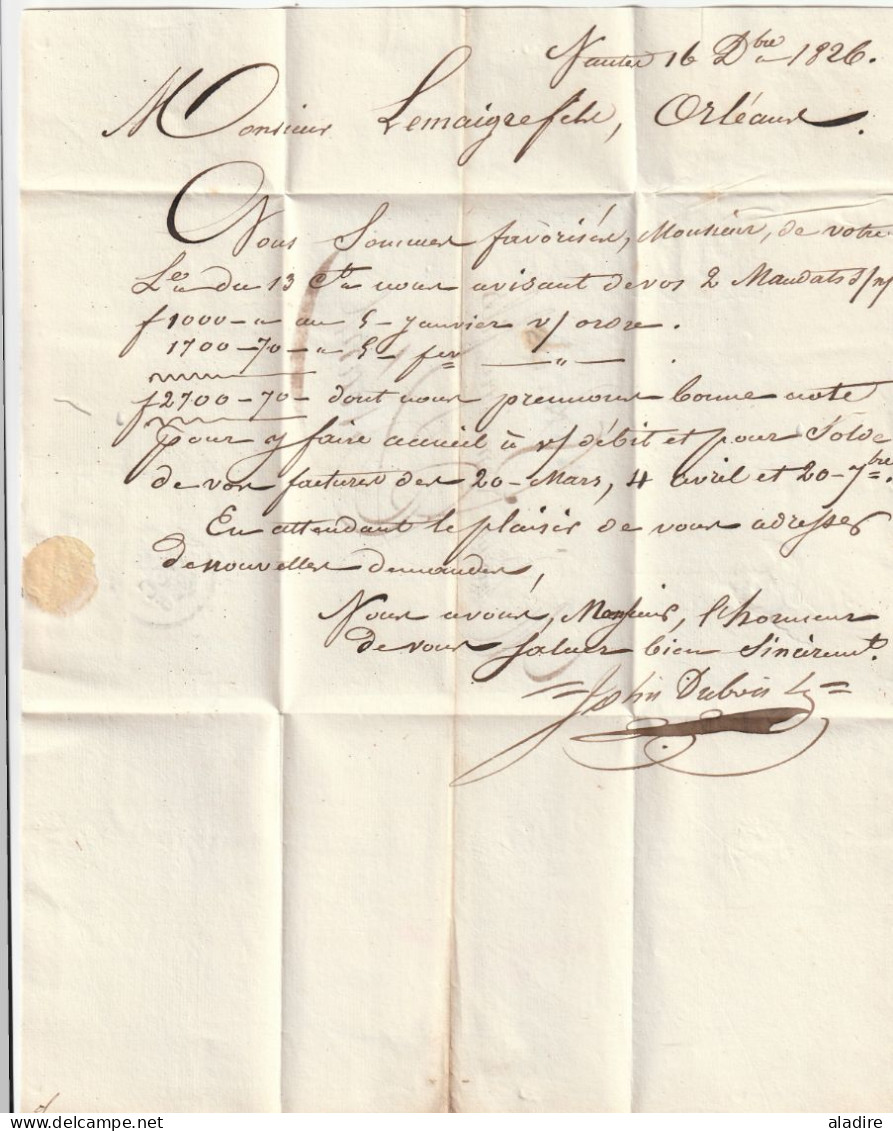 Nantes 16 Dbre 1826.
Monsieur Lemaigre fils, Orléans.
Nous Sommes favorisés, Monsieur, de votre
Lre du 13 Ct nous avisant de vos 2 Mandats s/n/
f 1000 - " au 5 - janvier v/ ordre.
1700 - 70 - " 5 - fer — " — .
f 2700 - 70 - dont nous prennons bonne note
pour y faire accueil à v/ débit et pour Solde
de vos factures des 20 - Mars, 4 avril et 20 - 7bre.
En attendant le plaisir de vous adresser
de nouvelles demandes,
Nous avons, Monsieur, l'honneur
de vous saluer bien Sincèremt.
John Dubois
aladire